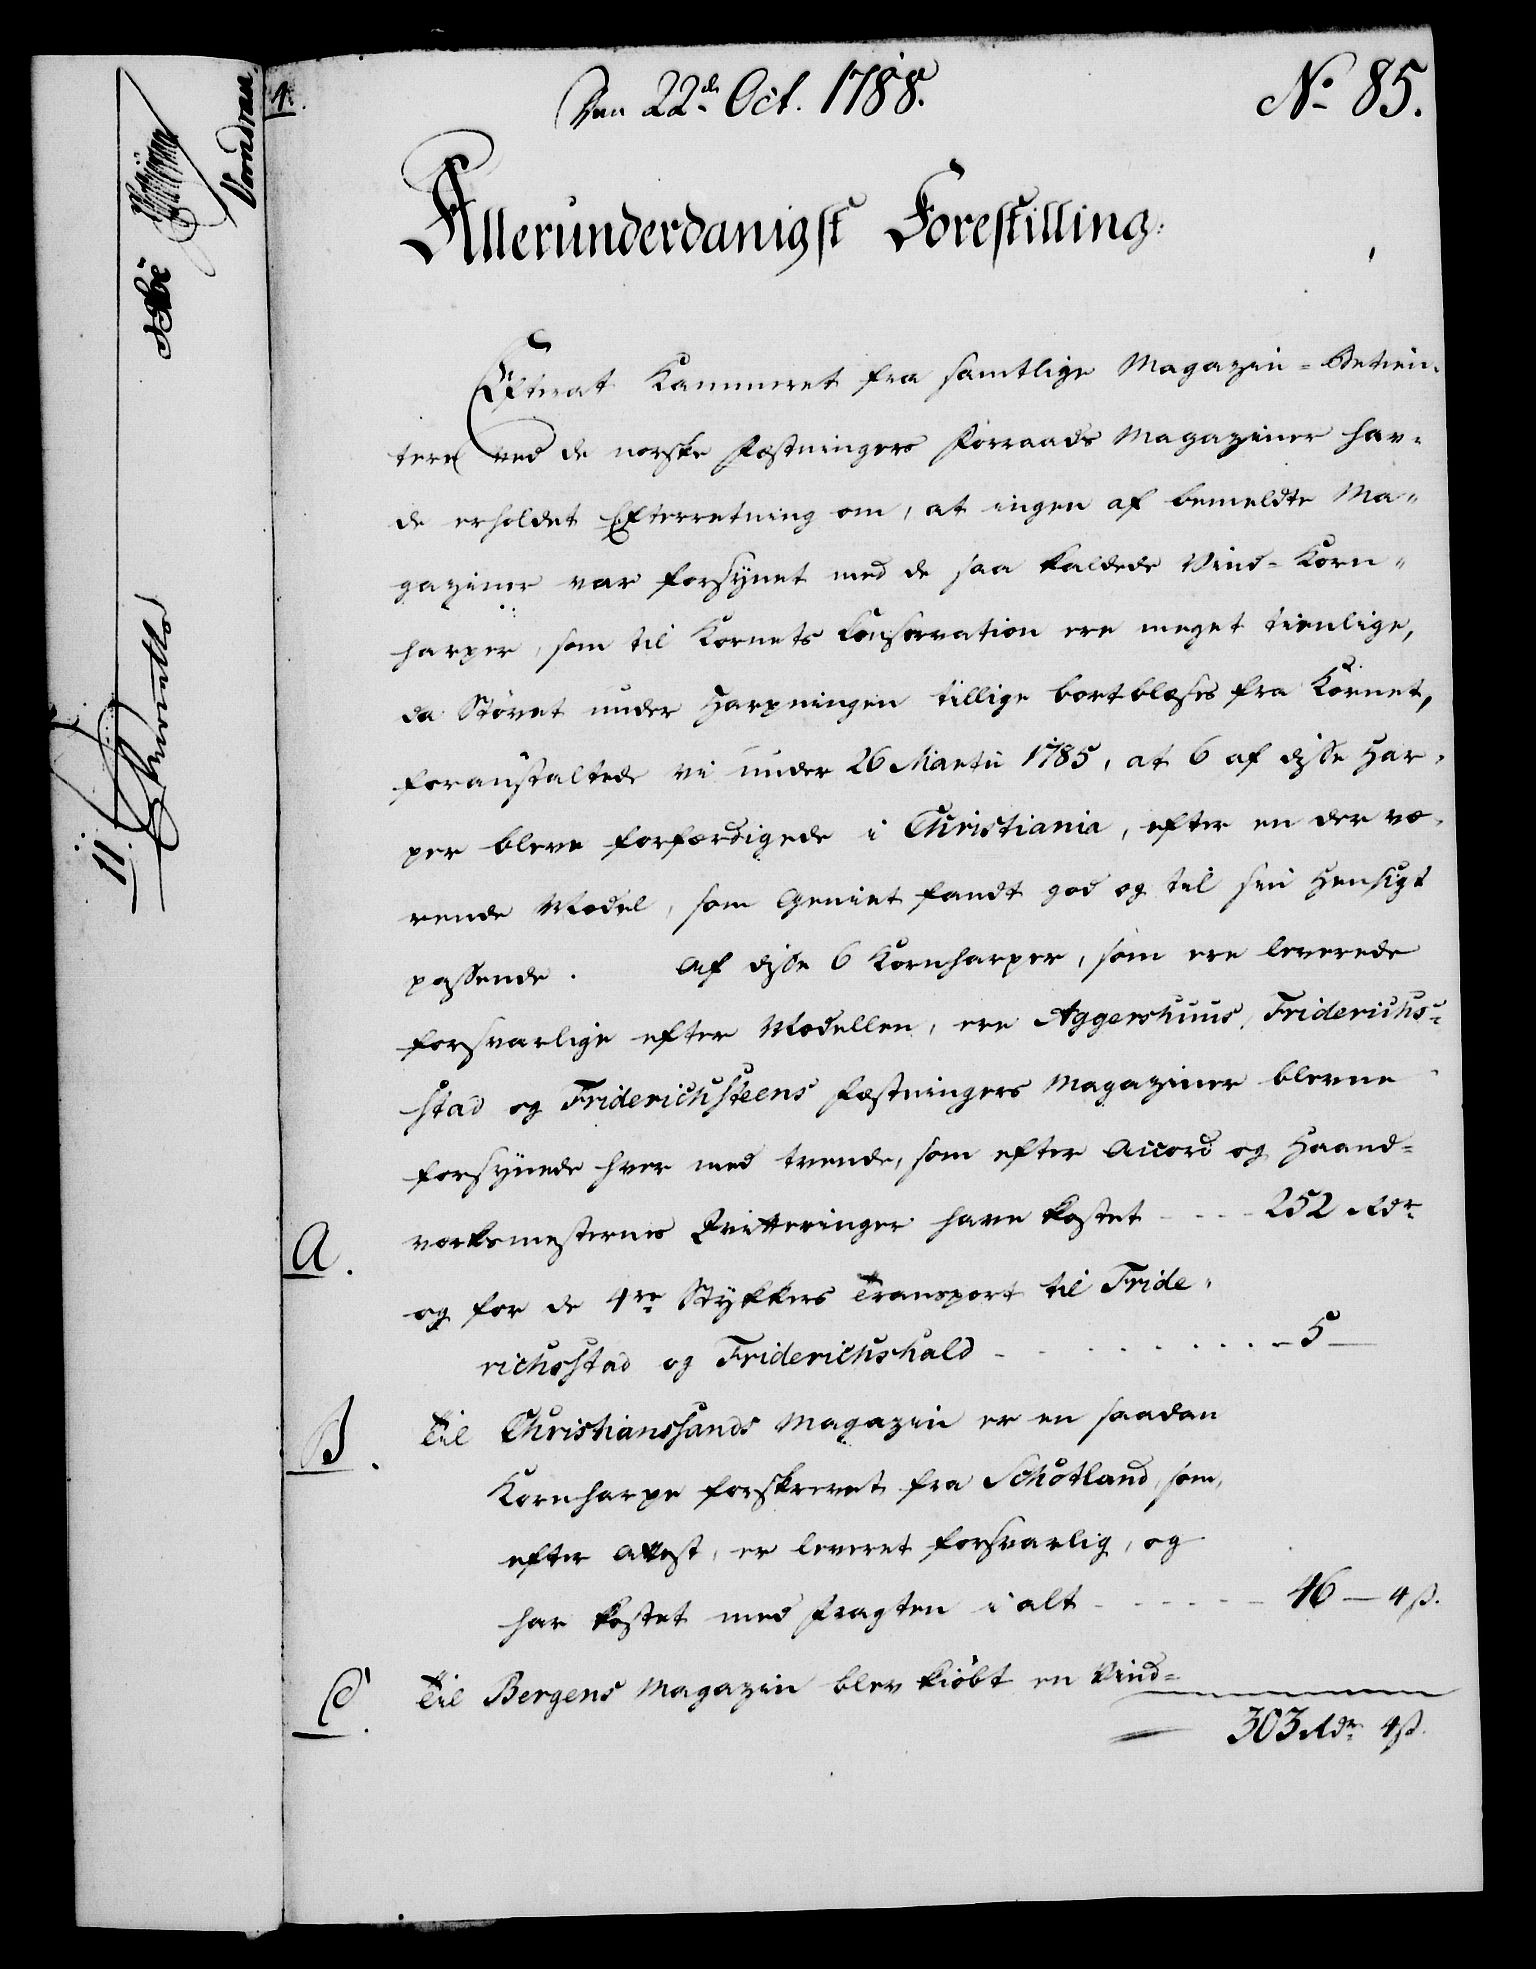 4.
Den 22de Oct. 1788.
No 85.
Allerunderdanigst Forestilling:
Efterat Kammeret fra samtlige Magazin-Betien-
tere ved de norske Fæstningers Forraads Magaziner hav-
de erholdet Efterretning om, at ingen af bemeldte Ma-
gaziner var forsÿnet med de saa kaldede Vind-Korn-
harper, som til Kornets Conservation ere meget tienlige,
da Støvet under Harpningen tillige bortblæses fra Kornet,
foranstaltede vi under 26 Martii 1785, at 6 af disse Har-
per bleve forfærdigede i Christiania, efter en der væ-
rende Model, som Geniet fandt god og til sin Hensigt
passende. Af disse 6 Kornharper, som ere leverede
forsvarlige efter Modellen, ere Aggershuus, Friderichs-
stad og Friderichsteens Fæstningers Magaziner blevne
forsÿnede hver med tvende, som efter Accord og Haand-
værksmesternes Qvitteringer have kostet - - - 252 Rdr
A.
og for de 4re Stÿkkers Transport til Fride-
richsstad og Friderichshald - - - - - - - - - 5 —
B.
Til Christianssands Magazin er en saadan
Kornharpe forskrevet fra Schotland, som,
efter Attest, er leveret forsvarlig, og
har kostet med Fragten i alt - - - - - - 46 — 4 ß.
C.
Til Bergens Magazin blev kiöbt en Vind-
303 Rdr 4 ß.
11.